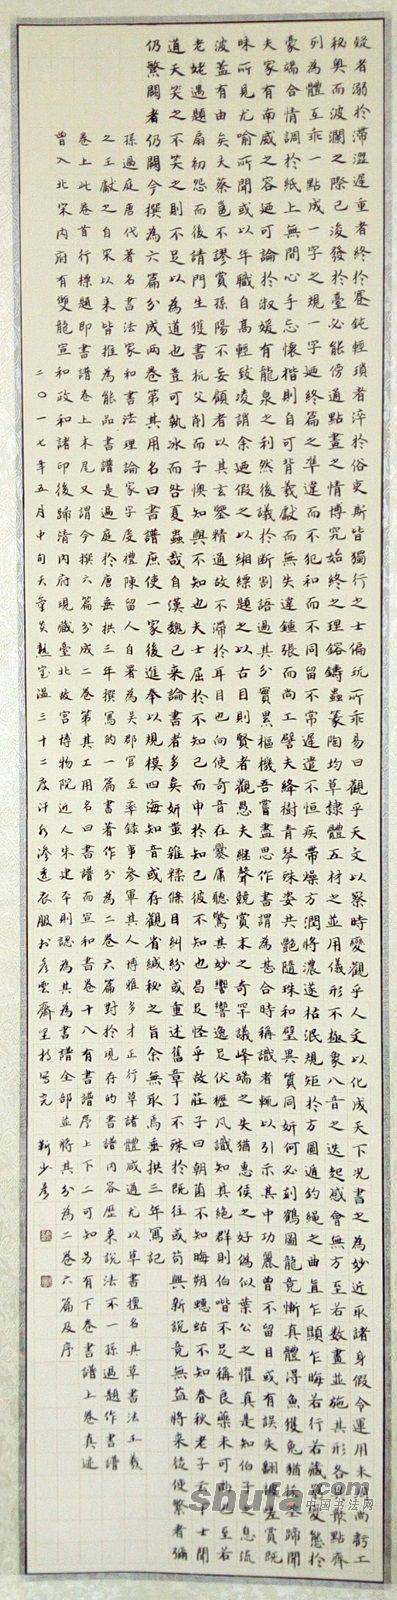 縱者溺於滯澀遲重者終於蹇鈍輕瑣者淬於俗吏斯皆獨行之士偏玩所乖易曰觀乎天文以察時變觀乎人文以化成天下況書之為妙近取諸身假令運用未周尚虧工
秘奧而波瀾之際已浚發於靈臺必能傍通點畫之情博究始終之理鎔鑄蟲篆陶均草隸體五材之並用儀形不極象八音之迭起感會無方至若數畫並施其形各異眾點齊
列為體互乖一點成一字之規一字迺終篇之準違而不犯和而不同留不常遲遣不恒疾帶燥方潤將濃遂枯泯規矩於方圓遁鉤繩之曲直乍顯乍晦若行若藏窮變態於
豪端合情調於紙上無間心手忘懷楷則自可背羲獻而無失違鍾張而尚工譬夫絳樹青琴殊姿共艷隨珠和璧異質同妍何必刻鶴圖龍竟慚真體得魚獲兔猶恡筌蹄聞
夫家有南威之容迺可論於淑媛有龍泉之利然後議於斷割語過其分實累樞機吾嘗盡思作書謂為甚合時稱識者輒以引示其中巧麗曾不留目或有誤失翻被嗟賞既
昧所見尤喻所聞或以年職自高輕致凌誚余迺假之以緗縹題之以古目則賢者觀愚夫繼聲競賞末之奇罕議峰端之失猶惠侯之好偽似葉公之懼真是知伯子之息流
波蓋有由矣夫蔡邕不謬賞孫陽不妄顧者以其玄鑒精通故不滯於耳目也向使奇音在爨庸聽驚其妙響逸足伏櫪凡識知其絕群則伯喈不足稱良藥未可尚也至若
老姥遇題扇初怨而後請門生獲書机父削而子懊知與不知也夫士屈於不知己而申於知己彼不知也曷足怪乎故莊子曰朝菌不知晦朔蟪蛄不知春秋老子云下士聞
道大笑之不笑之則不足以為道也豈可執冰而咎夏蟲哉自漢魏已來論書者多矣妍蚩雜糅條目糾紛或重述舊章了不殊於既往或苟興新說竟無益將來徒使繁者彌
仍繁闕者仍闕今撰為六篇分成兩卷第其用名曰書譜庶使一家後進奉以規模四海知音或存觀省緘秘之旨余無取焉垂拱三年寫記
孫過庭唐代著名書法家和書法理論家字虔禮陳留人自署為吳郡官至率府錄事參軍其人博雅多才正行草諸體咸通尤以草書擅名其草書法王羲
之王獻之自宋以來皆推為能品書譜是過庭於唐垂拱三年撰寫的一篇書著作分為二卷六篇對於現存的書譜內容歷來說法不一孫過題作書譜
卷上此卷首行標題即書譜卷上末尾又謂今撰六篇分成二卷第其工用名曰書譜而宣和書卷十八有書譜序上下二可知另有下卷書譜上卷真迹
曾入北宋內府有雙龍宣和政和諸印後歸清內府現藏臺北故宮博物院近人朱建本則認為其為書譜全部並將其分為二卷六篇及序
二〇一七年五月中旬天氣炎熱室溫三十二度汗水滲透衣服於彥雲齋呈於寫完 靳少彥
shufa.com
中国书法网